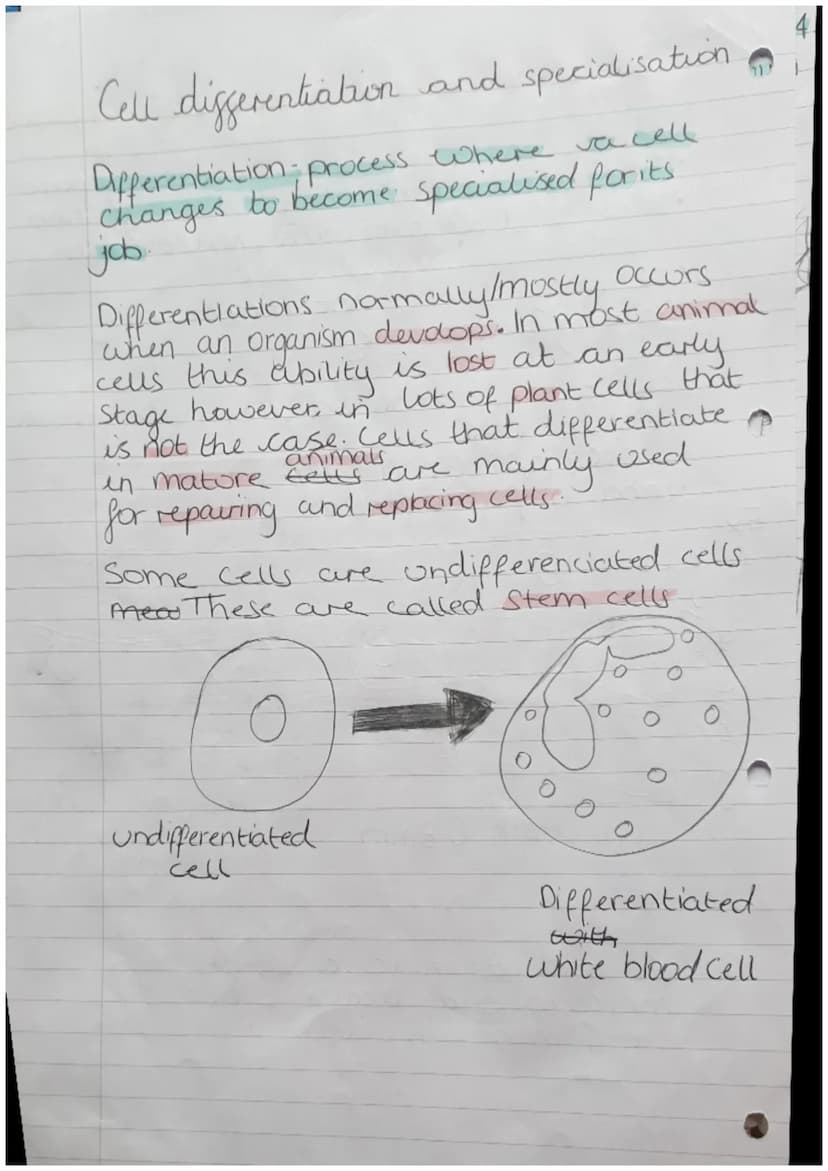 4
Cell differentiation and specialisation
Differentiation- process where a cell
changes to become specialised for its
job.
Differentiations normally/mostly occurs
when an organism devolops. In most animal
cells this ability is lost at an early
stage however in lots of plant cells that
is not the case. Cells that differentiate
animals
in mature cells are mainly used
for repairing and replacing cells.
Some cells are undifferenciated cells
These are called Stem cells
undifferentiated
cell
Differentiated
with
white blood cell